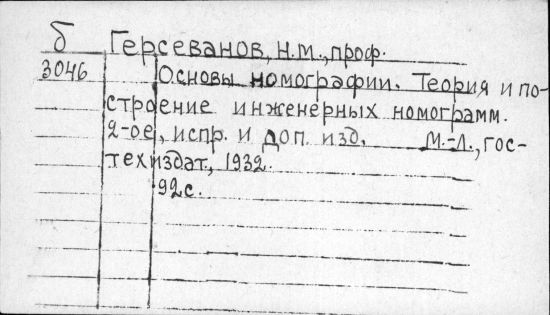 б Герсеванов, Н.М., проф.
3046 Основы номографии. Теория и по-
строение инженерных номограмм.
2-ое, испр. и доп. изд. М.-Л., гос-
техиздат., 1932.
92с.